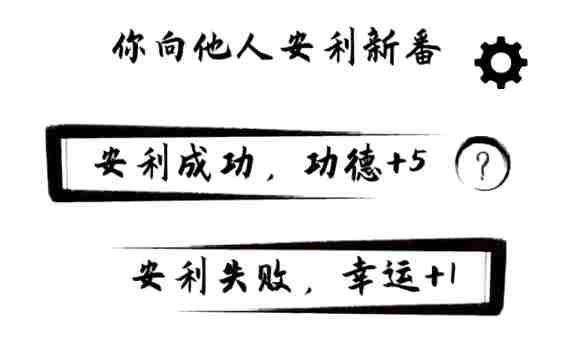 你向他人安利新番
安利成功，功德+5
?
安利失败，幸运+1